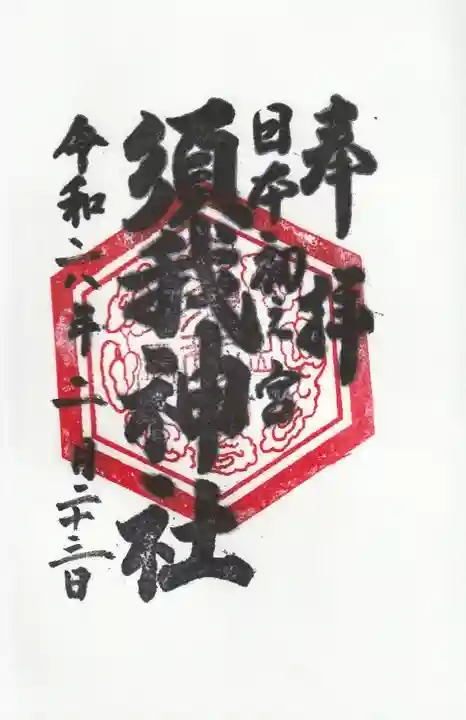 奉拝
日本初之宮
須我神社
令和六年二月二十三日